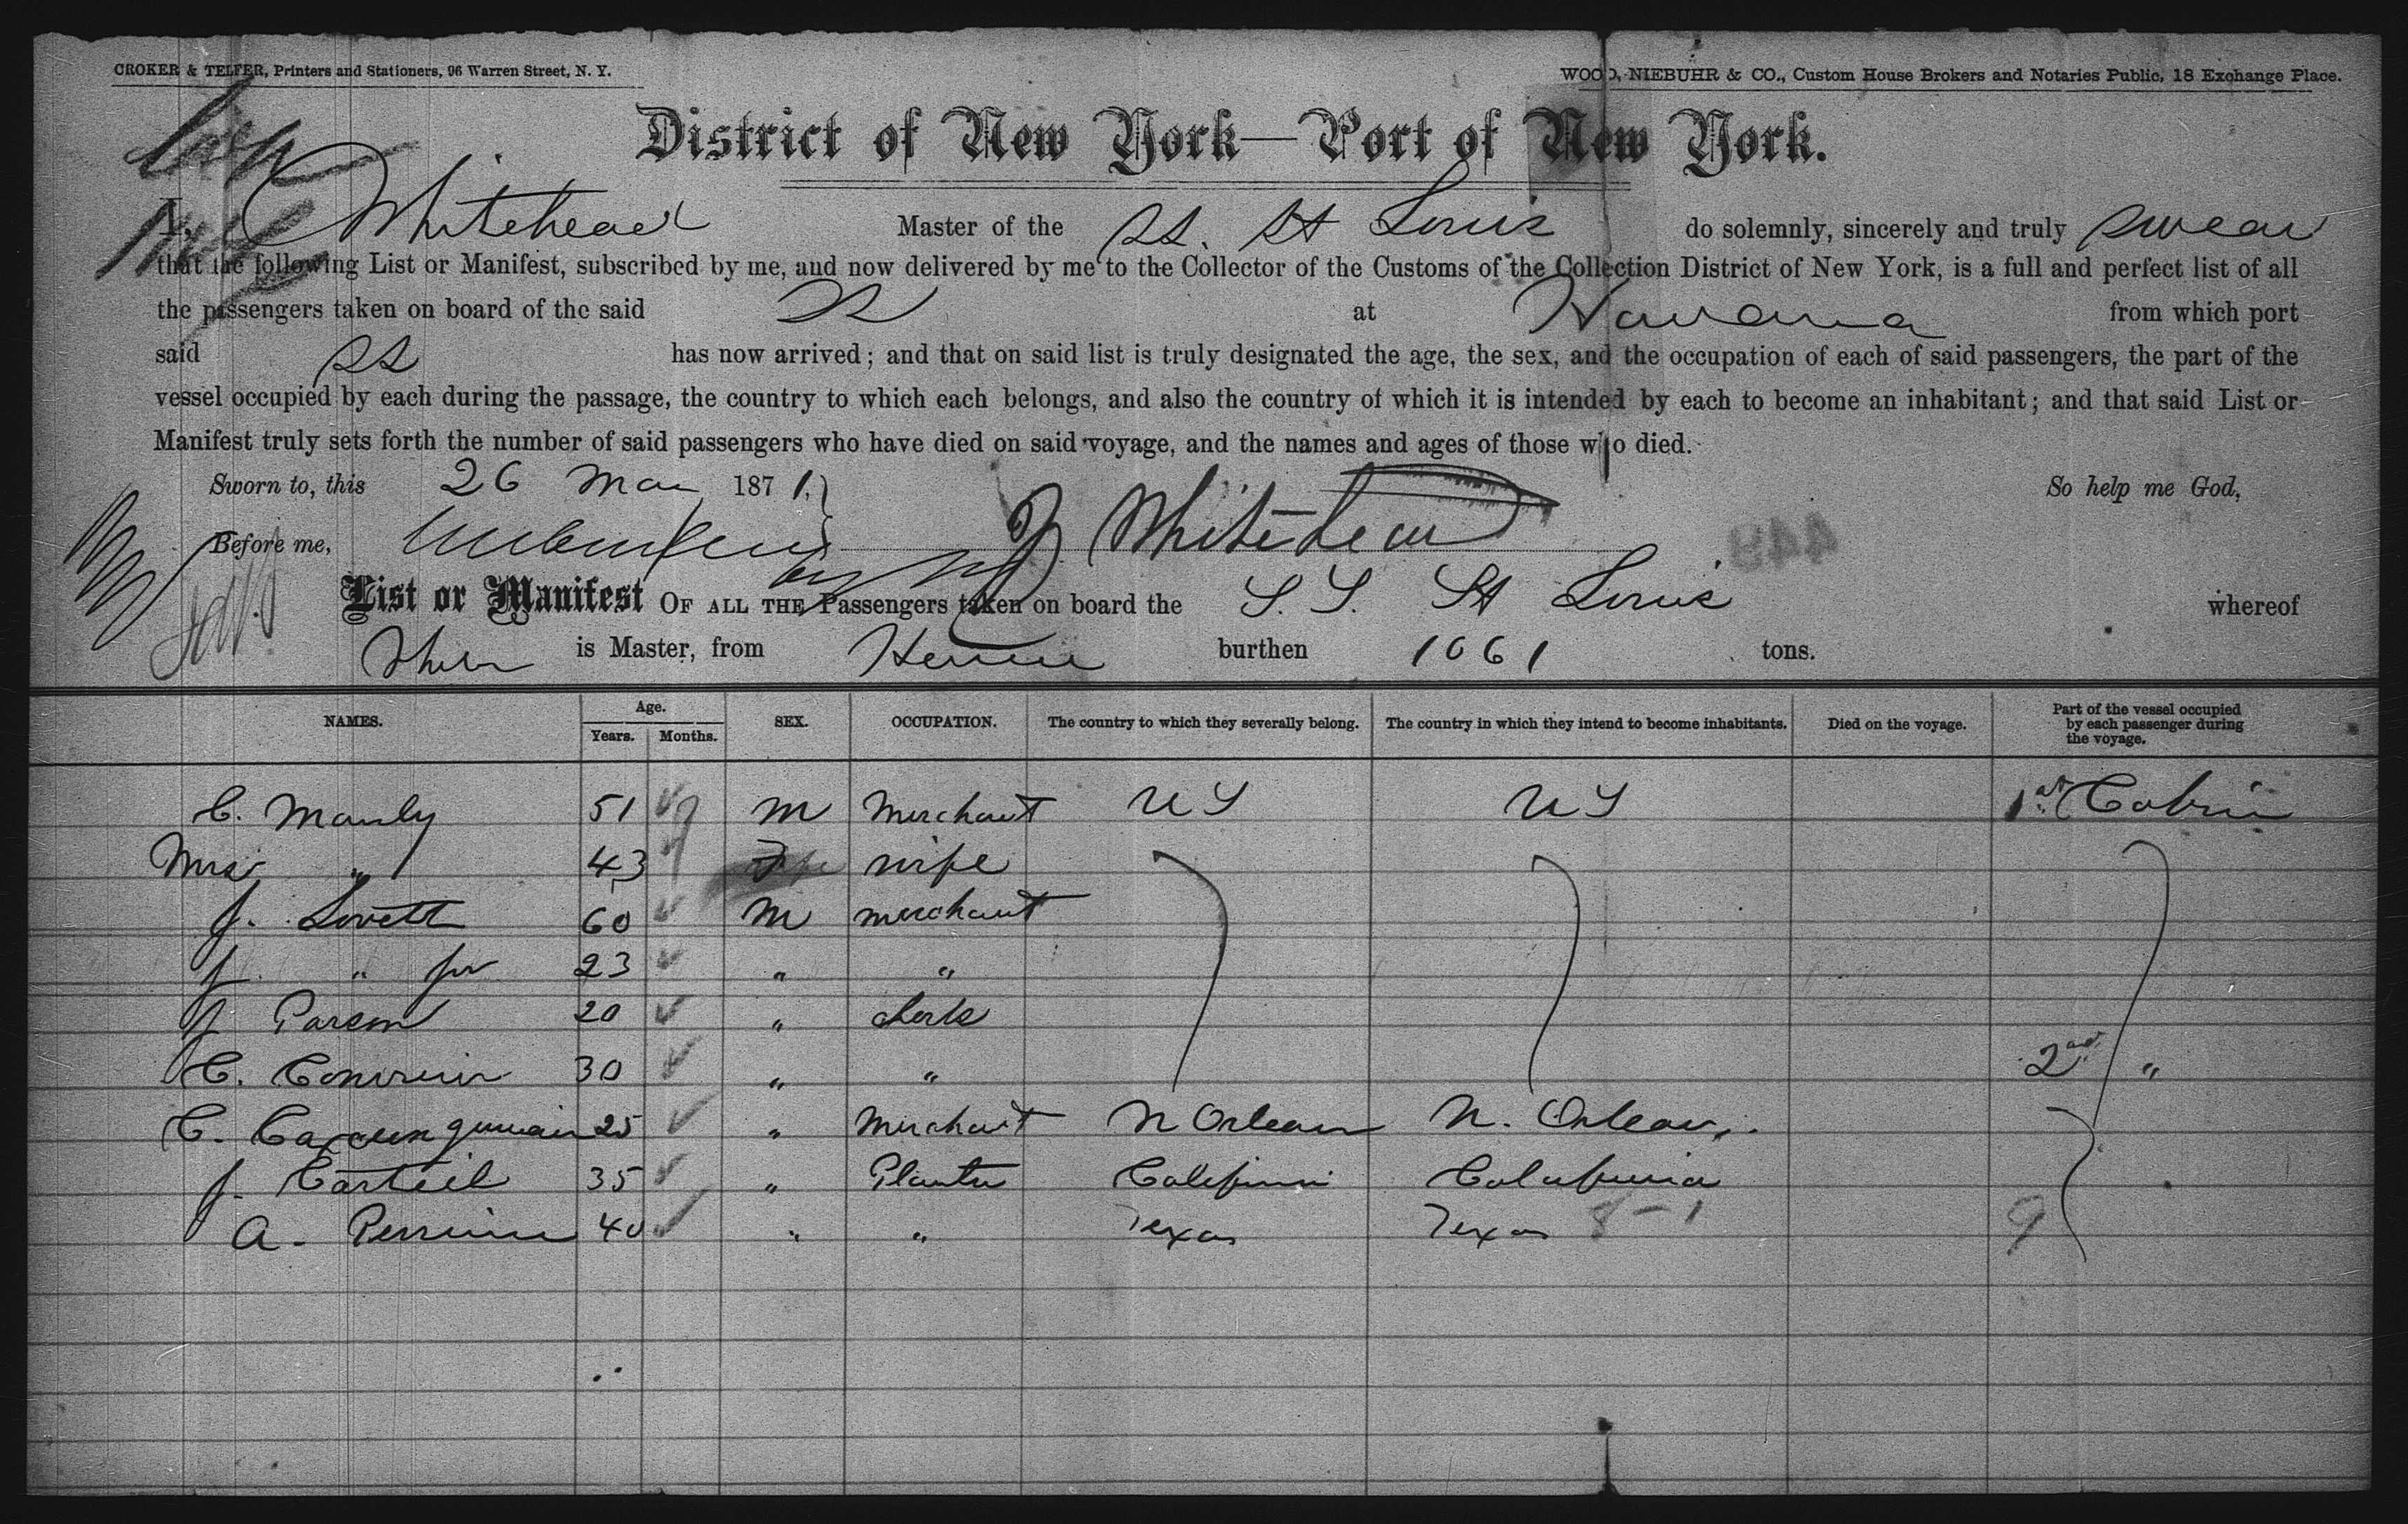 CROKER & TELFER, Printers and Stationers, 96 Warren Street, N. Y. WOOD, NIEBUHR & CO., Custom House Brokers and Notaries Public, 18 Exchange Place.
District of New York—Port of New York.
I, Whitehead Master of the SS. St Louis do solemnly, sincerely and truly swear
that the following List or Manifest, subscribed by me, and now delivered by me to the Collector of the Customs of the Collection District of New York, is a full and perfect list of all
the passengers taken on board of the said SS at Havana from which port
said SS has now arrived; and that on said list is truly designated the age, the sex, and the occupation of each of said passengers, the part of the
vessel occupied by each during the passage, the country to which each belongs, and also the country of which it is intended by each to become an inhabitant; and that said List or
Manifest truly sets forth the number of said passengers who have died on said voyage, and the names and ages of those who died.
Sworn to, this 26 Mar 1871. So help me God,
Before me, Whitehead
449
List or Manifest OF ALL THE Passengers taken on board the S. S. St Louis whereof
is Master, from burthen 1061 tons.
NAMES. Age. Years. Months. SEX. OCCUPATION. The country to which they severally belong. The country in which they intend to become inhabitants. Died on the voyage. Part of the vessel occupied by each passenger during the voyage.
C. Manly 51 M Merchant U S U S 1st Cabin
Mrs " 43 wife
J. Lovett 60 M merchant
J. " jnr 23 " "
J Parson 20 " clerk
C. 30 " " 2nd "
C. 25 " Merchant N Orleans N. Orleans
J. 35 " Planter California California
A. Perrine 40 " " Texas Texas 8-1 9